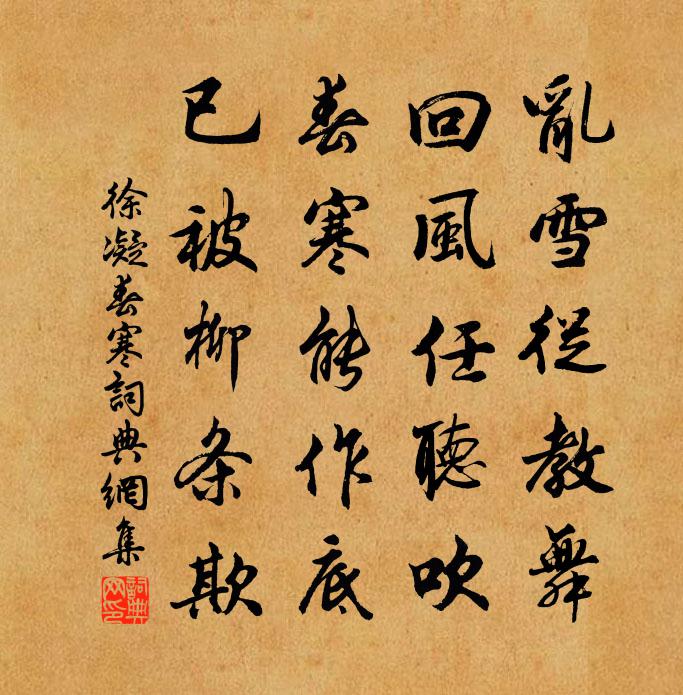 亂雪從教舞
回風任聽吹
春寒能作底
已被柳条欺
徐凝春寒詞典網集
詞典网印